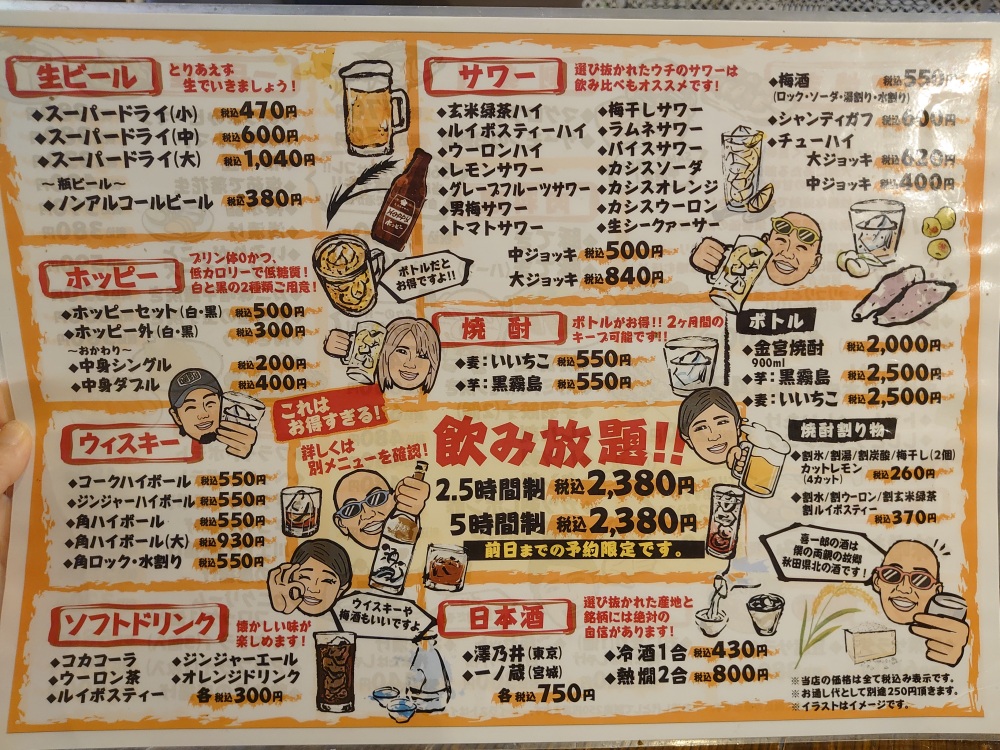 生ビール
とりあえず
生でいきましょう！
◆スーパードライ(小) 税込470円
◆スーパードライ(中) 税込600円
◆スーパードライ(大) 税込1,040円
～瓶ビール～
◆ノンアルコールビール 税込380円
HOPPY
ホッピー
ホッピー
プリン体0かつ、
低カロリーで低糖質！
白と黒の2種類ご用意！
ボトルだと
お得ですよ!!
◆ホッピーセット(白・黒) 税込500円
◆ホッピー外(白・黒) 税込300円
～おかわり～
◆中身シングル 税込200円
◆中身ダブル 税込400円
ウィスキー
◆コークハイボール 税込550円
◆ジンジャーハイボール 税込550円
◆角ハイボール 税込550円
◆角ハイボール(大) 税込930円
◆角ロック・水割り 税込550円
ソフトドリンク
懐かしい味が
楽しめます！
◆コカコーラ ◆ジンジャーエール
◆ウーロン茶 ◆オレンジドリンク
◆ルイボスティー 各税込300円
サワー
選び抜かれたウチのサワーは
飲み比べもオススメです！
◆玄米緑茶ハイ
◆ルイボスティーハイ
◆ウーロンハイ
◆レモンサワー
◆グレープフルーツサワー
◆男梅サワー
◆トマトサワー
◆梅干しサワー
◆ラムネサワー
◆バイスサワー
◆カシスソーダ
◆カシスオレンジ
◆カシスウーロン
◆生シークァーサー
中ジョッキ 税込500円
大ジョッキ 税込840円
◆梅酒 税込550円
(ロック・ソーダ・湯割り・水割り)
◆シャンディガフ 税込600円
◆チューハイ
大ジョッキ 税込620円
中ジョッキ 税込400円
焼酎
ボトルがお得!! 2ヶ月間の
キープ可能です!!
◆麦：いいちこ 税込550円
◆芋：黒霧島 税込550円
ボトル
◆金宮焼酎 税込2,000円
900ml
◆芋：黒霧島 税込2,500円
◆麦：いいちこ 税込2,500円
焼酎割り物
◆割氷/割湯/割炭酸/梅干し(2個)
カットレモン
(4カット) 税込260円
◆割水/割ウーロン/割玄米緑茶
割ルイボスティー
税込370円
これは
お得すぎる！
詳しくは
別メニューを確認！
飲み放題!!
2.5時間制 税込2,380円
5時間制 税込2,380円
前日までの予約限定です。
ウイスキーや
梅酒もいいですよ
喜一郎の酒は
僕の両親の故郷
秋田県北の酒です！
日本酒
選び抜かれた産地と
銘柄には絶対の
自信があります！
◆澤乃井(東京)
◆一ノ蔵(宮城)
各税込750円
◆冷酒1合 税込430円
◆熱燗2合 税込800円
※当店の価格は全て税込み表示です。
※お通し代として別途250円頂きます。
※イラストはイメージです。